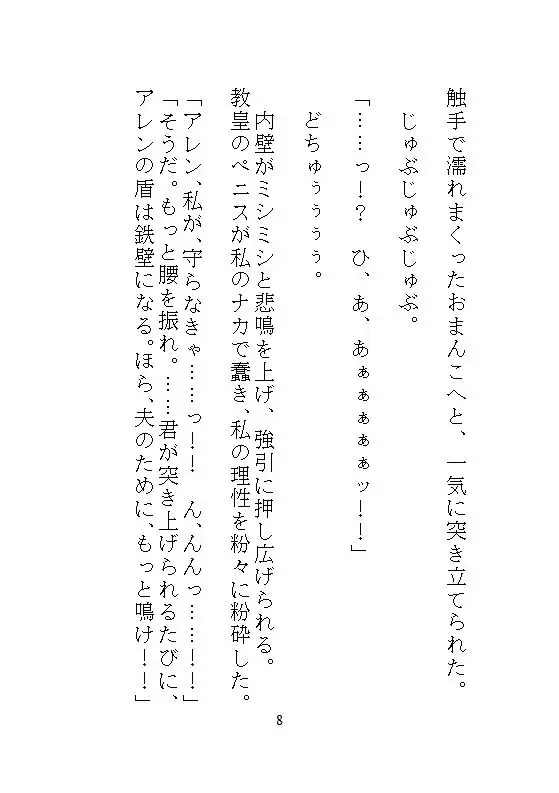 触手で濡れまくったおまんこへと、一気に突き立てられた。
じゅぶじゅぶじゅぶ。
「……っ！？　ひ、あ、あぁぁぁぁぁッ！！」
どちゅぅぅぅぅ。
内壁がミシミシと悲鳴を上げ、強引に押し広げられる。
教皇のペニスが私のナカで蠢き、私の理性を粉々に粉砕した。
「アレン、私が、守らなきゃ……っ！！　ん、んんっ……！！」
「そうだ。もっと腰を振れ。……君が突き上げられるたびに、
アレンの盾は鉄壁になる。ほら、夫のために、もっと鳴け！！」
8